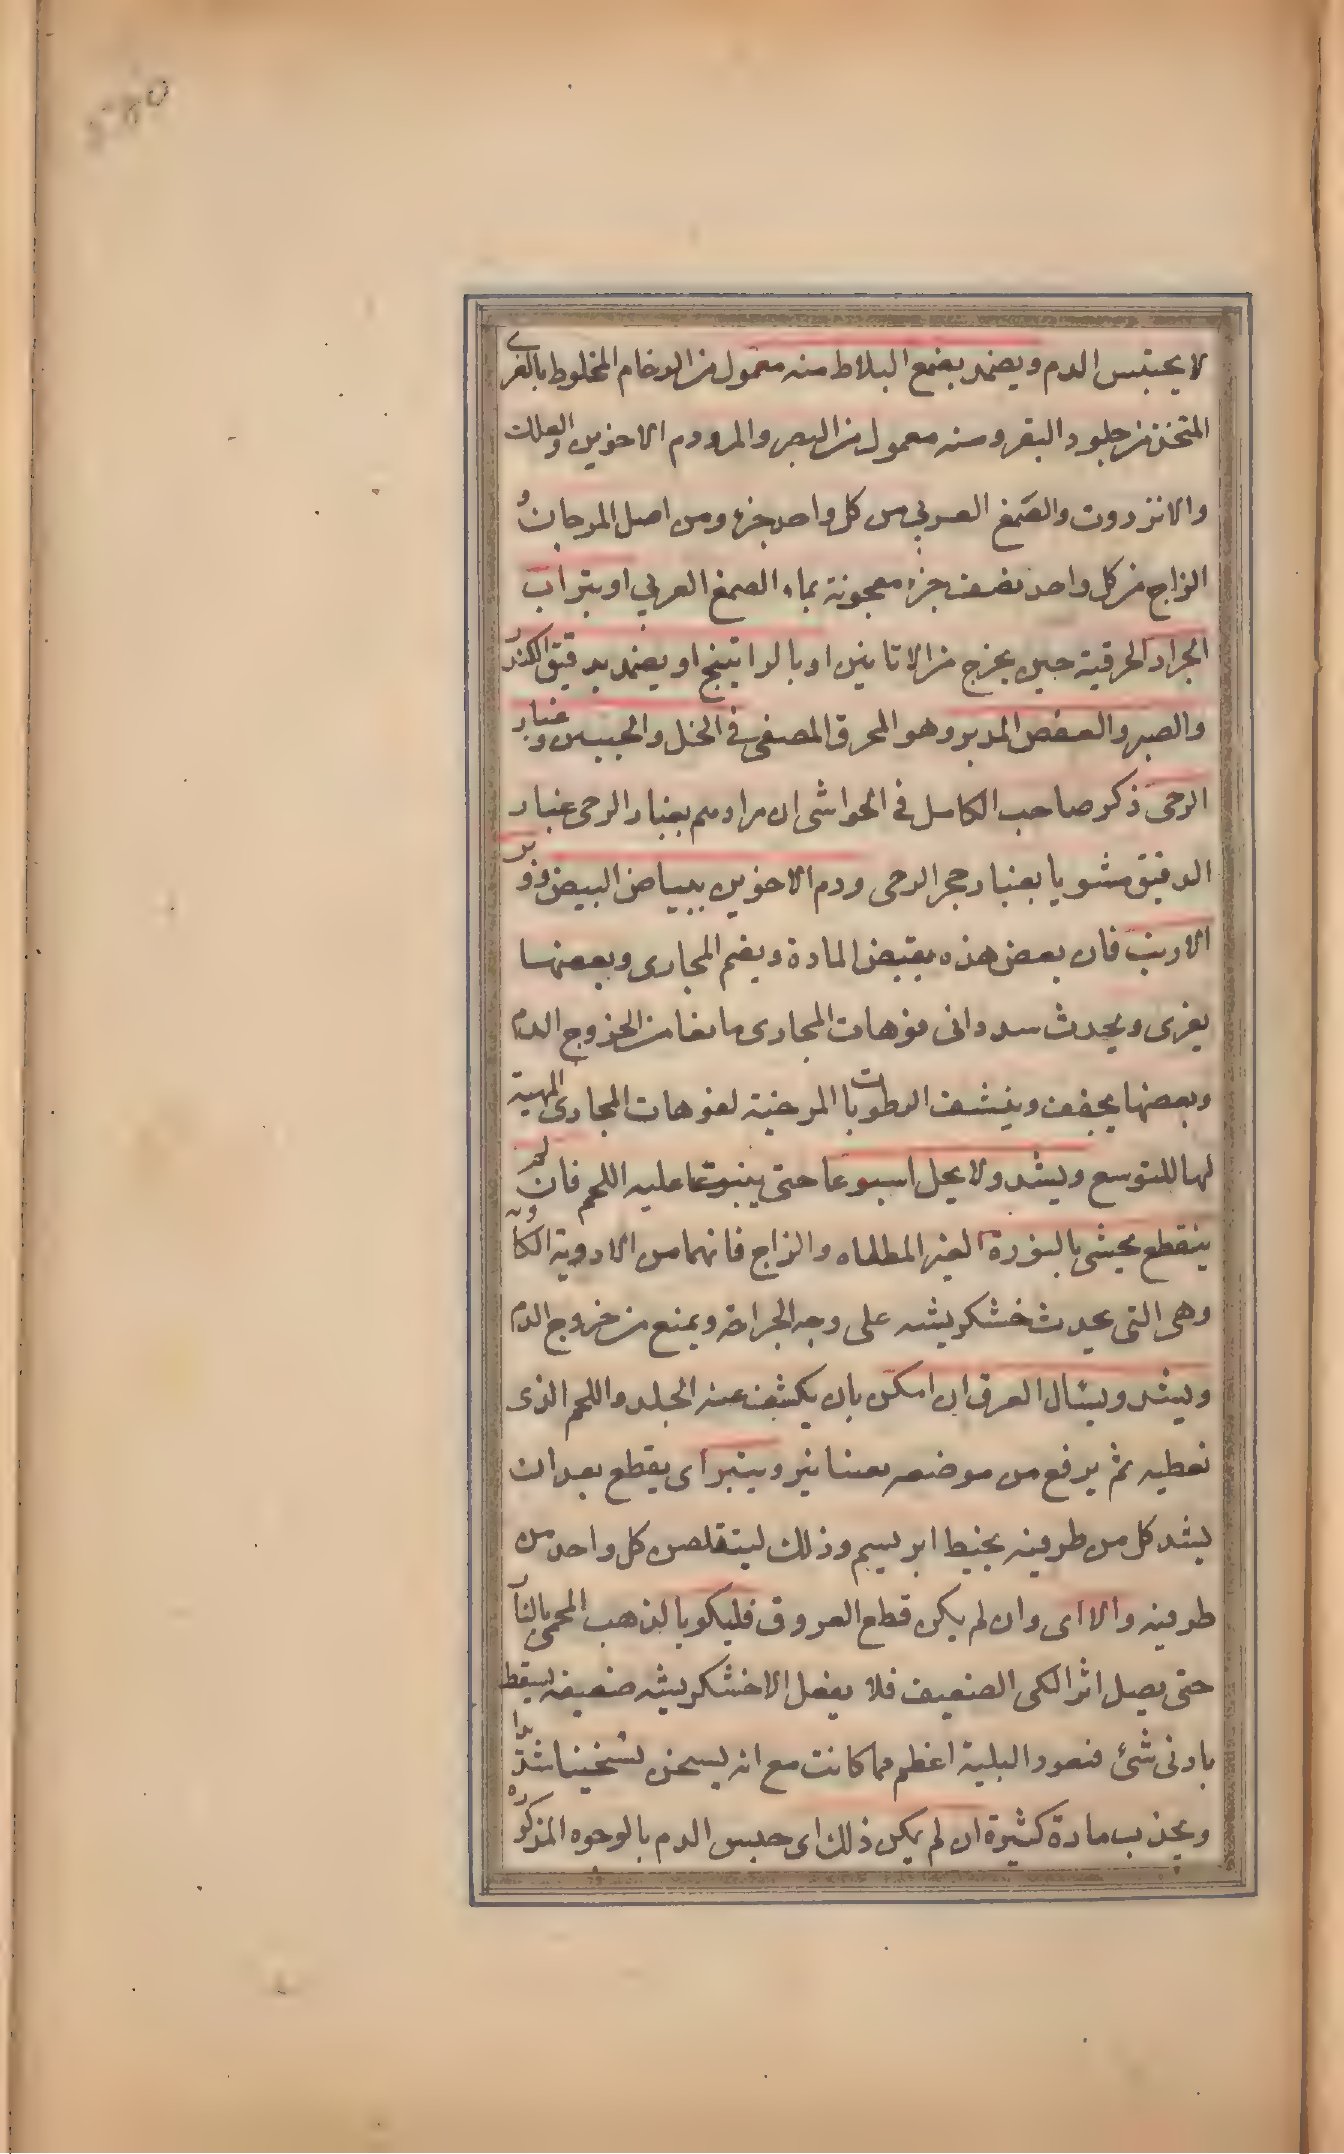 لا يحتبس الدم ويضمد بضمع البلاط منه معمول من الرخام المخلوط بالغرى
المتخذ من جلود البقر ومنه معمول من الصبر والمر ودم الاخوين والعلك
والانزروت والصمغ العربي من كل واحد جزء ومن اصل المرجان و
الزاج من كل واحد نصف جزء معجونة بماء الصمغ العربي او بتراب
الجرار الخزفية حين يخرج من الاتانين او بالراتينج او يضمد بدقيق الكندر
والصبر والعفص المدبر وهو المحرق المصفى في الخل والجبسين وغبار
الرحى ذكر صاحب الكامل في الحواشى ان مرادهم بغبار الرحى غبار
الدقيق مشويا بغبار حجر الرحى ودم الاخوين ببياض البيض ووبر
الارنب فان بعض هذه يقبض المادة ويضم المجارى وبعضها
يغرى ويحدث سددا فى فوهات المجارى مانعا من الخروج الدم
وبعضها يجفف وينشف الرطوبات المرخية لفوهات المجارى المهية
لها للتوسع ويشد ولا يحل اسبوعا حتى ينبت عليه اللحم فان لم
ينقطع يحشى بالنورة الغير المطفاه والزاج فانهما من الادوية الكاوية
وهى التى يحدث خشكريشه على وجه الجراحة ويمنع من خروج الدم
ويشد ويشال العرق ان امكن بان يكشف عنه الجلد واللحم الذى
تغطيه ثم يرفع من موضعه بصنانير ويبتر اى يقطع بعد ان
يشد كل من طرفيه بخيط ابريسم وذلك ليتقلص كل واحد من
طرفيه والا اى وان لم يكن قطع العروق فليكو بالذهب المحمى بالنار
حتى يصل اثر الكى الضعيف فلا يفعل الا خشكريشه ضعيفه يسقط
بادنى شئ فتعود البلية اعظم مما كانت مع انه يسخن تسخينا شديدا
ويجذب مادة كثيرة ان لم يكن ذلك اى حبس الدم بالوجوه المذكوره